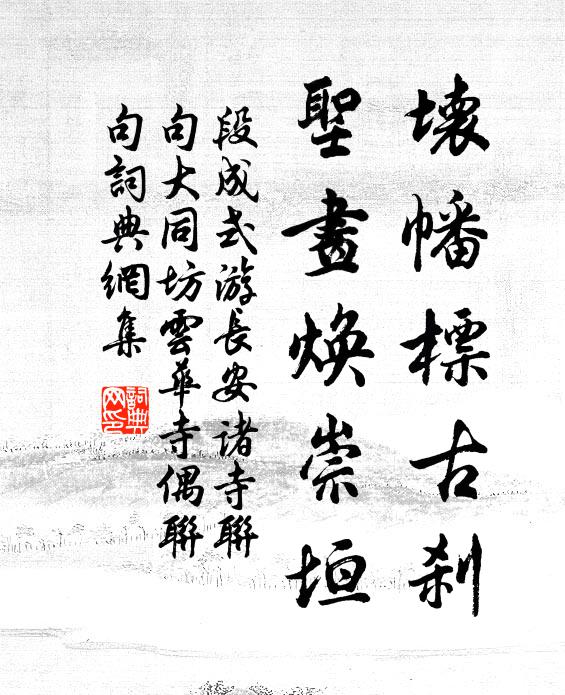 壞幡標古刹
聖畫煥崇垣
段成式游長安諸寺聯
句大同坊雲華寺偶聯
句詞典網集
詞典
网印